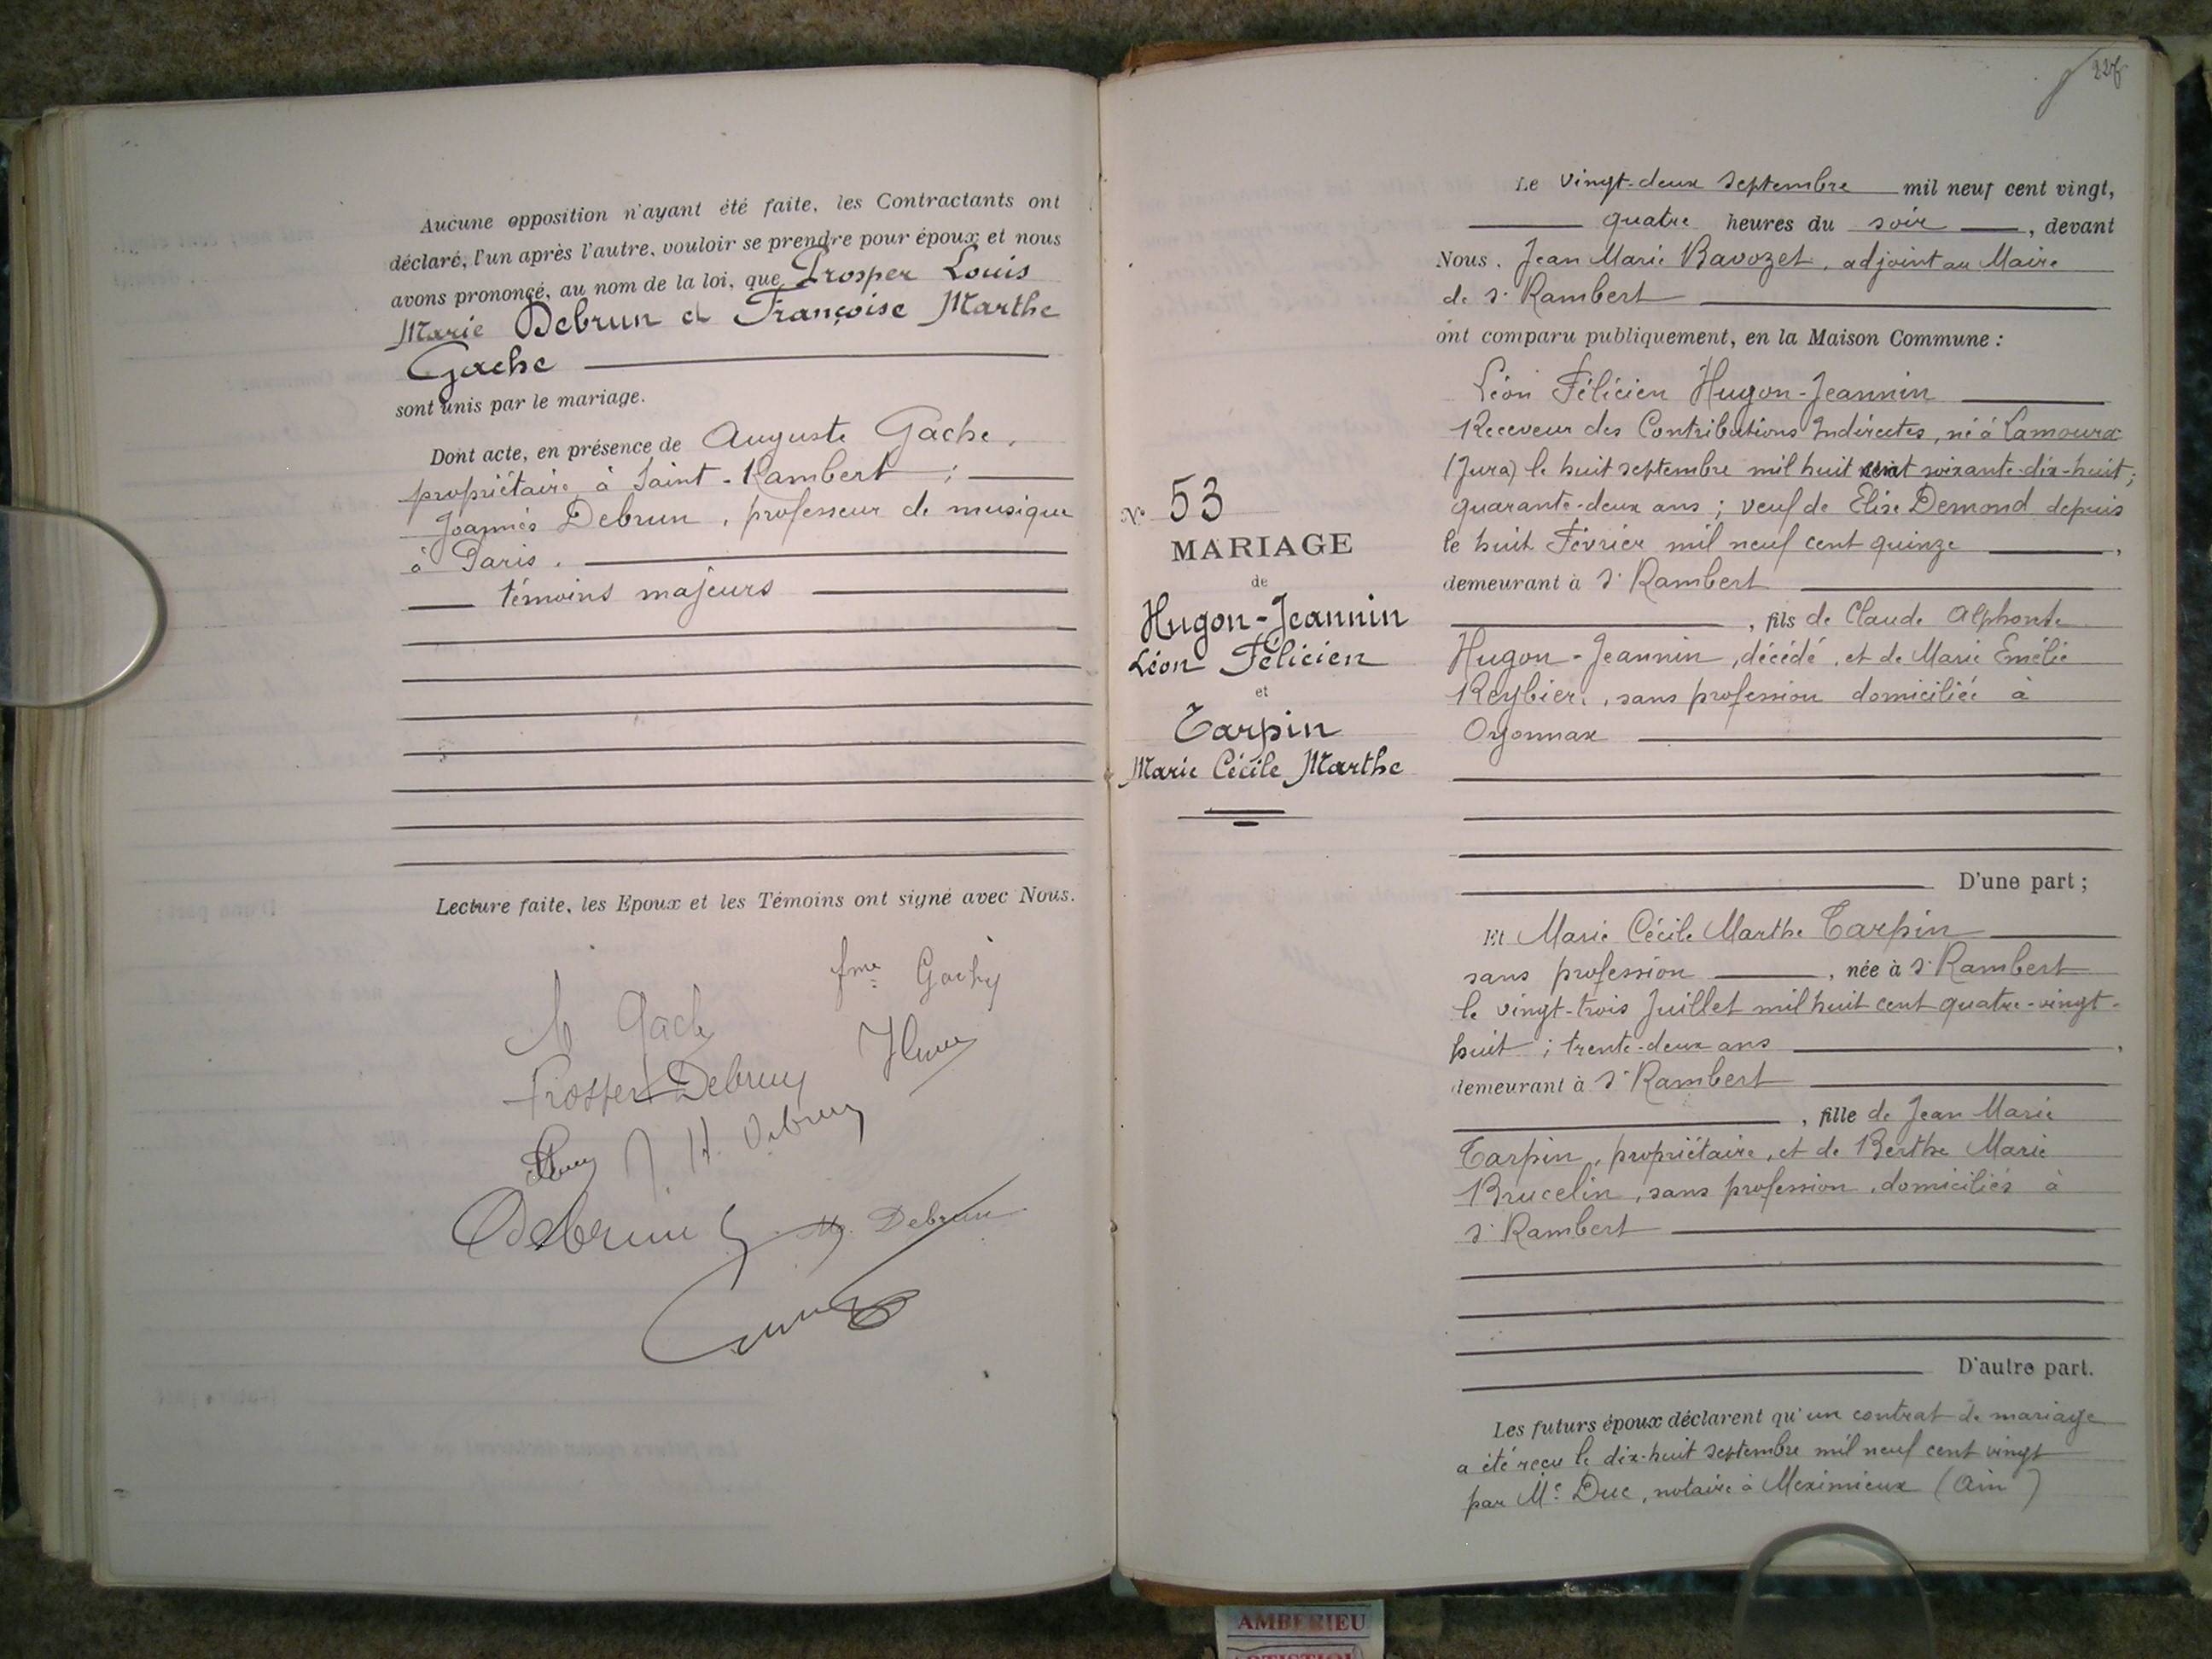 Aucune opposition n'ayant été faite, les Contractants ont
déclaré, l'un après l'autre, vouloir se prendre pour époux et nous
avons prononcé, au nom de la loi, que Prosper Louis
Marie Debrun et Françoise Marthe
Gache
sont unis par le mariage.
Dont acte, en présence de Auguste Gache,
propriétaire à Saint-Rambert ;
Joannès Debrun, professeur de musique
à Paris.
témoins majeurs
Lecture faite, les Epoux et les Témoins ont signé avec Nous.
fme
M Gache
Prosper Debrun
J. H. Debrun
Debrun
M. Debrun
Le vingt-deux septembre mil neuf cent vingt,
quatre heures du soir, devant
Nous, Jean Marie Bavozet, adjoint au Maire
de St Rambert
ont comparu publiquement, en la Maison Commune :
Léon Félicien Hugon-Jeannin
Receveur des Contributions Indirectes, né à Lamoura
(Jura) le huit septembre mil huit cent soixante-dix-huit ;
quarante-deux ans ; veuf de Elise Demond depuis
le huit Février mil neuf cent quinze,
demeurant à St Rambert
, fils de Claude Alphonse
Hugon-Jeannin, décédé, et de Marie Emélie
Reybier, sans profession domiciliée à
Oyonnax
D'une part ;
N° 53
MARIAGE
de
Hugon-Jeannin
Léon Félicien
et
Tarpin
Marie Cécile Marthe
Et Marie Cécile Marthe Tarpin
sans profession, née à St Rambert
le vingt-trois Juillet mil huit cent quatre-vingt-
huit ; trente-deux ans,
demeurant à St Rambert
, fille de Jean Marie
Tarpin, propriétaire, et de Berthe Marie
Brucelin, sans profession, domiciliés à
St Rambert
D'autre part.
Les futurs époux déclarent qu'un contrat de mariage
a été reçu le dix-huit septembre mil neuf cent vingt
par Me Duc, notaire à Meximieux (Ain)
AMBERIEU